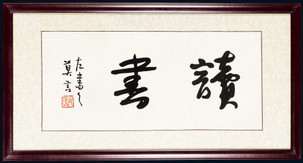 讀書
左書之
莫言